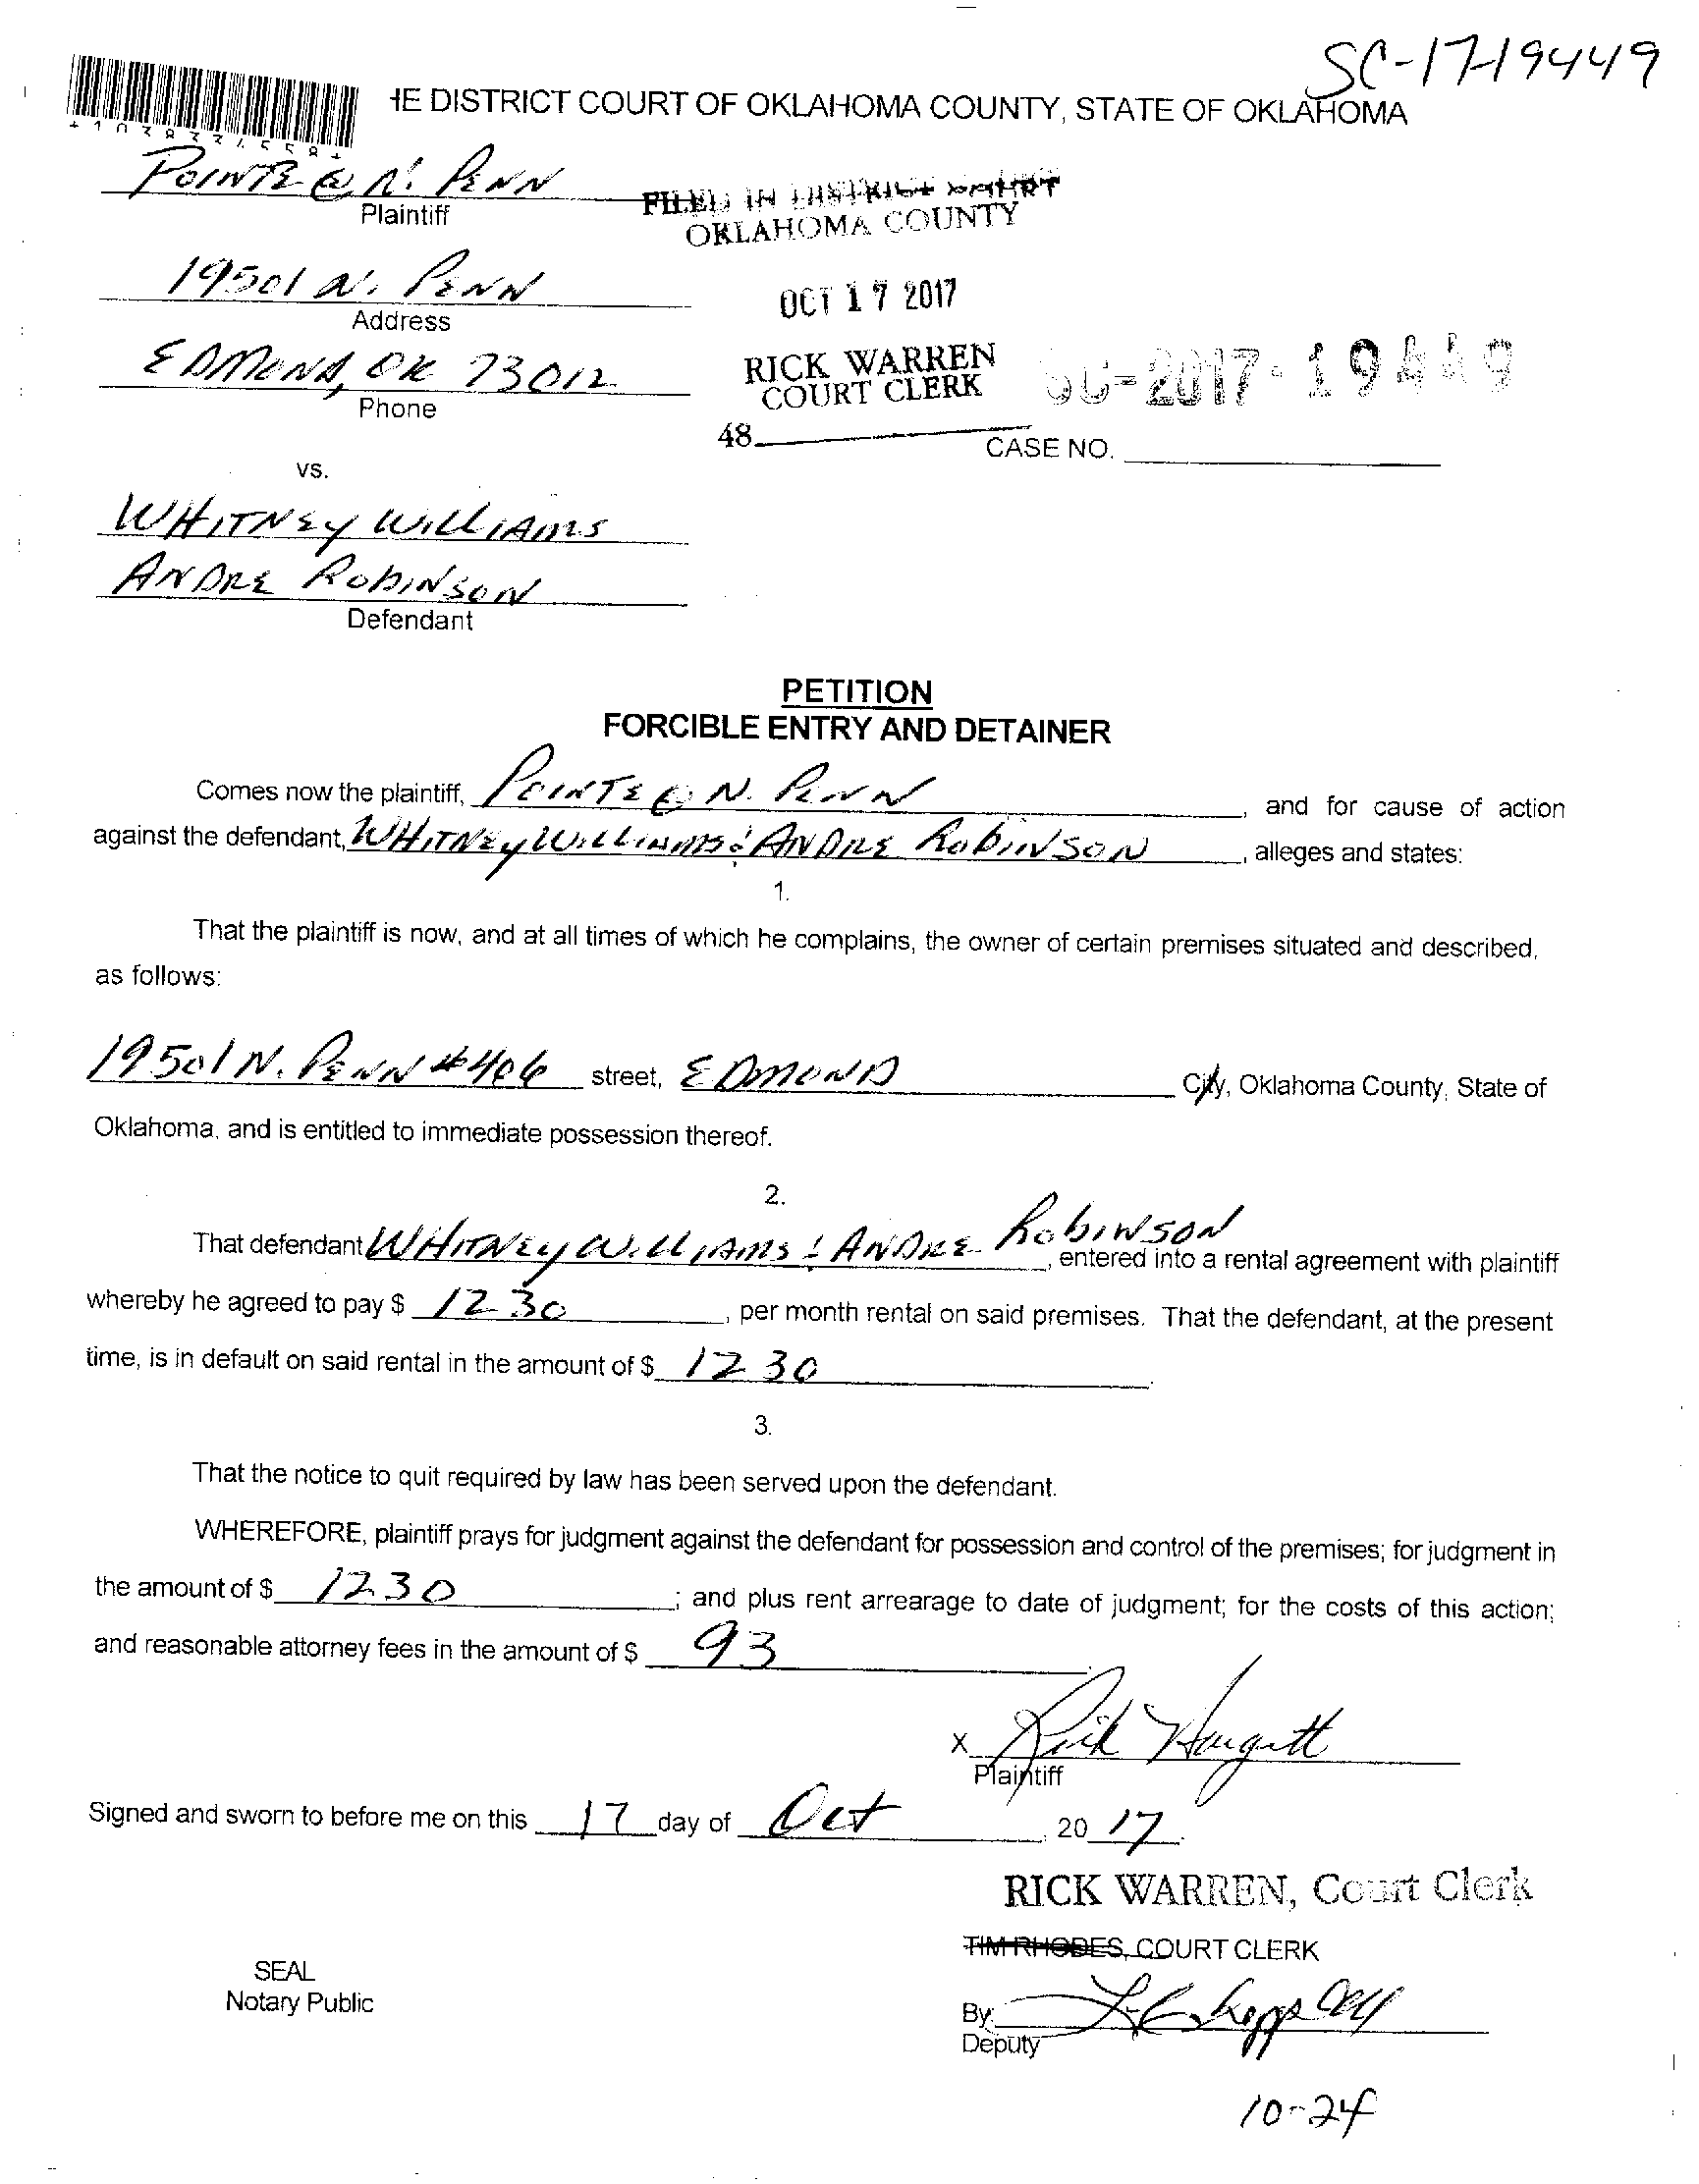 SC-17-19449
HE DISTRICT COURT OF OKLAHOMA COUNTY, STATE OF OKLAHOMA
POINTE @ N. PENN
Plaintiff
FILED IN DISTRICT COURT
OKLAHOMA COUNTY
19501 N. PENN
Address
OCT 17 2017
EDMOND, OK 73012
Phone
RICK WARREN
COURT CLERK
SC-2017-19449
48
CASE NO.
vs.
WHITNEY WILLIAMS
ANDRE ROBINSON
Defendant
PETITION
FORCIBLE ENTRY AND DETAINER
Comes now the plaintiff, POINTE @ N. PENN, and for cause of action
against the defendant, WHITNEY WILLIAMS & ANDRE ROBINSON, alleges and states:
1.
That the plaintiff is now, and at all times of which he complains, the owner of certain premises situated and described,
as follows:
19501 N. PENN #406 street, EDMOND City, Oklahoma County, State of
Oklahoma, and is entitled to immediate possession thereof.
2.
That defendant WHITNEY WILLIAMS & ANDRE ROBINSON, entered into a rental agreement with plaintiff
whereby he agreed to pay $ 1230, per month rental on said premises. That the defendant, at the present
time, is in default on said rental in the amount of $ 1230.
3.
That the notice to quit required by law has been served upon the defendant.
WHEREFORE, plaintiff prays for judgment against the defendant for possession and control of the premises; for judgment in
the amount of $ 1230; and plus rent arrearage to date of judgment; for the costs of this action;
and reasonable attorney fees in the amount of $ 93.
x Rick Hargett
Plaintiff
Signed and sworn to before me on this 17 day of Oct, 20 17.
RICK WARREN, Court Clerk
TIM RHODES, COURT CLERK
SEAL
Notary Public
By:
Deputy
10-24